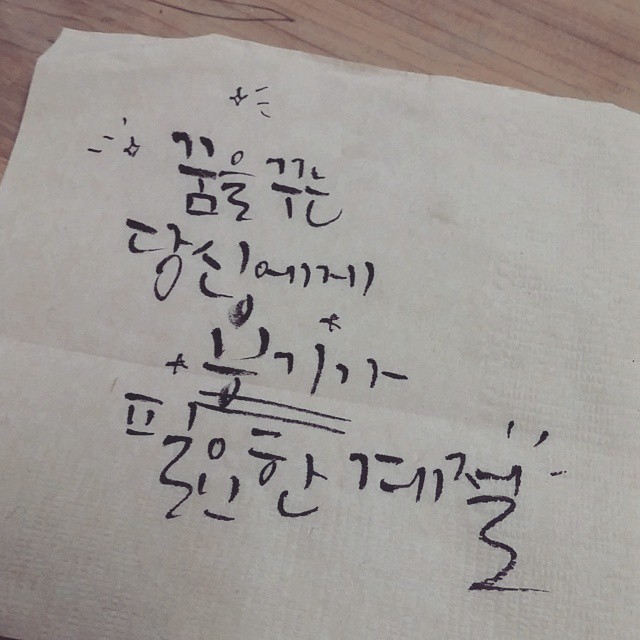 꿈을 꾸는
당신에게
용기가
필요한 계절